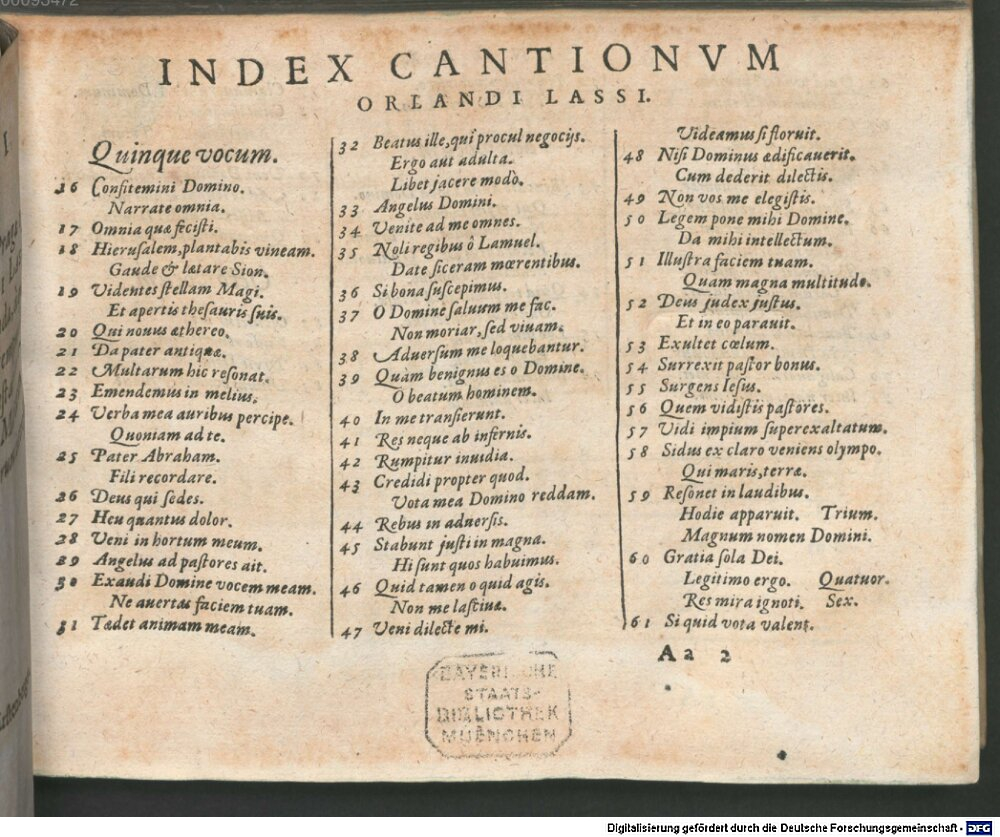 INDEX CANTIONVM
ORLANDI LASSI.
Quinque vocum.
16 Confitemini Domino.
Narrate omnia.
17 Omnia quæ fecisti.
18 Hierusalem, plantabis vineam.
Gaude & lætare Sion.
19 Videntes stellam Magi.
Et apertis thesauris suis.
20 Qui nouus æthereo.
21 Da pater antiquæ.
22 Multarum hic resonat.
23 Emendemus in melius.
24 Verba mea auribus percipe.
Quoniam ad te.
25 Pater Abraham.
Fili recordare.
26 Deus qui sedes.
27 Heu quantus dolor.
28 Veni in hortum meum.
29 Angelus ad pastores ait.
30 Exaudi Domine vocem meam.
Ne auertas faciem tuam.
31 Tædet animam meam.
32 Beatus ille, qui procul negocijs.
Ergo aut adulta.
Libet jacere modò.
33 Angelus Domini.
34 Venite ad me omnes.
35 Noli regibus ô Lamuel.
Date siceram mœrentibus.
36 Si bona suscepimus.
37 O Domine saluum me fac.
Non moriar, sed viuam.
38 Aduersum me loquebantur.
39 Quàm benignus es o Domine.
O beatum hominem.
40 In me transierunt.
41 Res neque ab infernis.
42 Rumpitur inuidia.
43 Credidi propter quod.
Vota mea Domino reddam.
44 Rebus in aduersis.
45 Stabunt justi in magna.
Hi sunt quos habuimus.
46 Quid tamen o quid agis.
Non me lasciuæ.
47 Veni dilecte mi.
Videamus si floruit.
48 Nisi Dominus ædificauerit.
Cum dederit dilectis.
49 Non vos me elegistis.
50 Legem pone mihi Domine.
Da mihi intellectum.
51 Illustra faciem tuam.
Quam magna multitudo.
52 Deus judex justus.
Et in eo parauit.
53 Exultet cœlum.
54 Surrexit pastor bonus.
55 Surgens Iesus.
56 Quem vidistis pastores.
57 Vidi impium superexaltatum.
58 Sidus ex claro veniens olympo.
Qui maris, terræ.
59 Resonet in laudibus.
Hodie apparuit. Trium.
Magnum nomen Domini.
60 Gratia sola Dei.
Legitimo ergo. Quatuor.
Res mira ignoti. Sex.
61 Si quid vota valent.
Aa 2
BAYERISCHE
STAATS-
BIBLIOTHEK
MUENCHEN
Digitalisierung gefördert durch die Deutsche Forschungsgemeinschaft - DFG